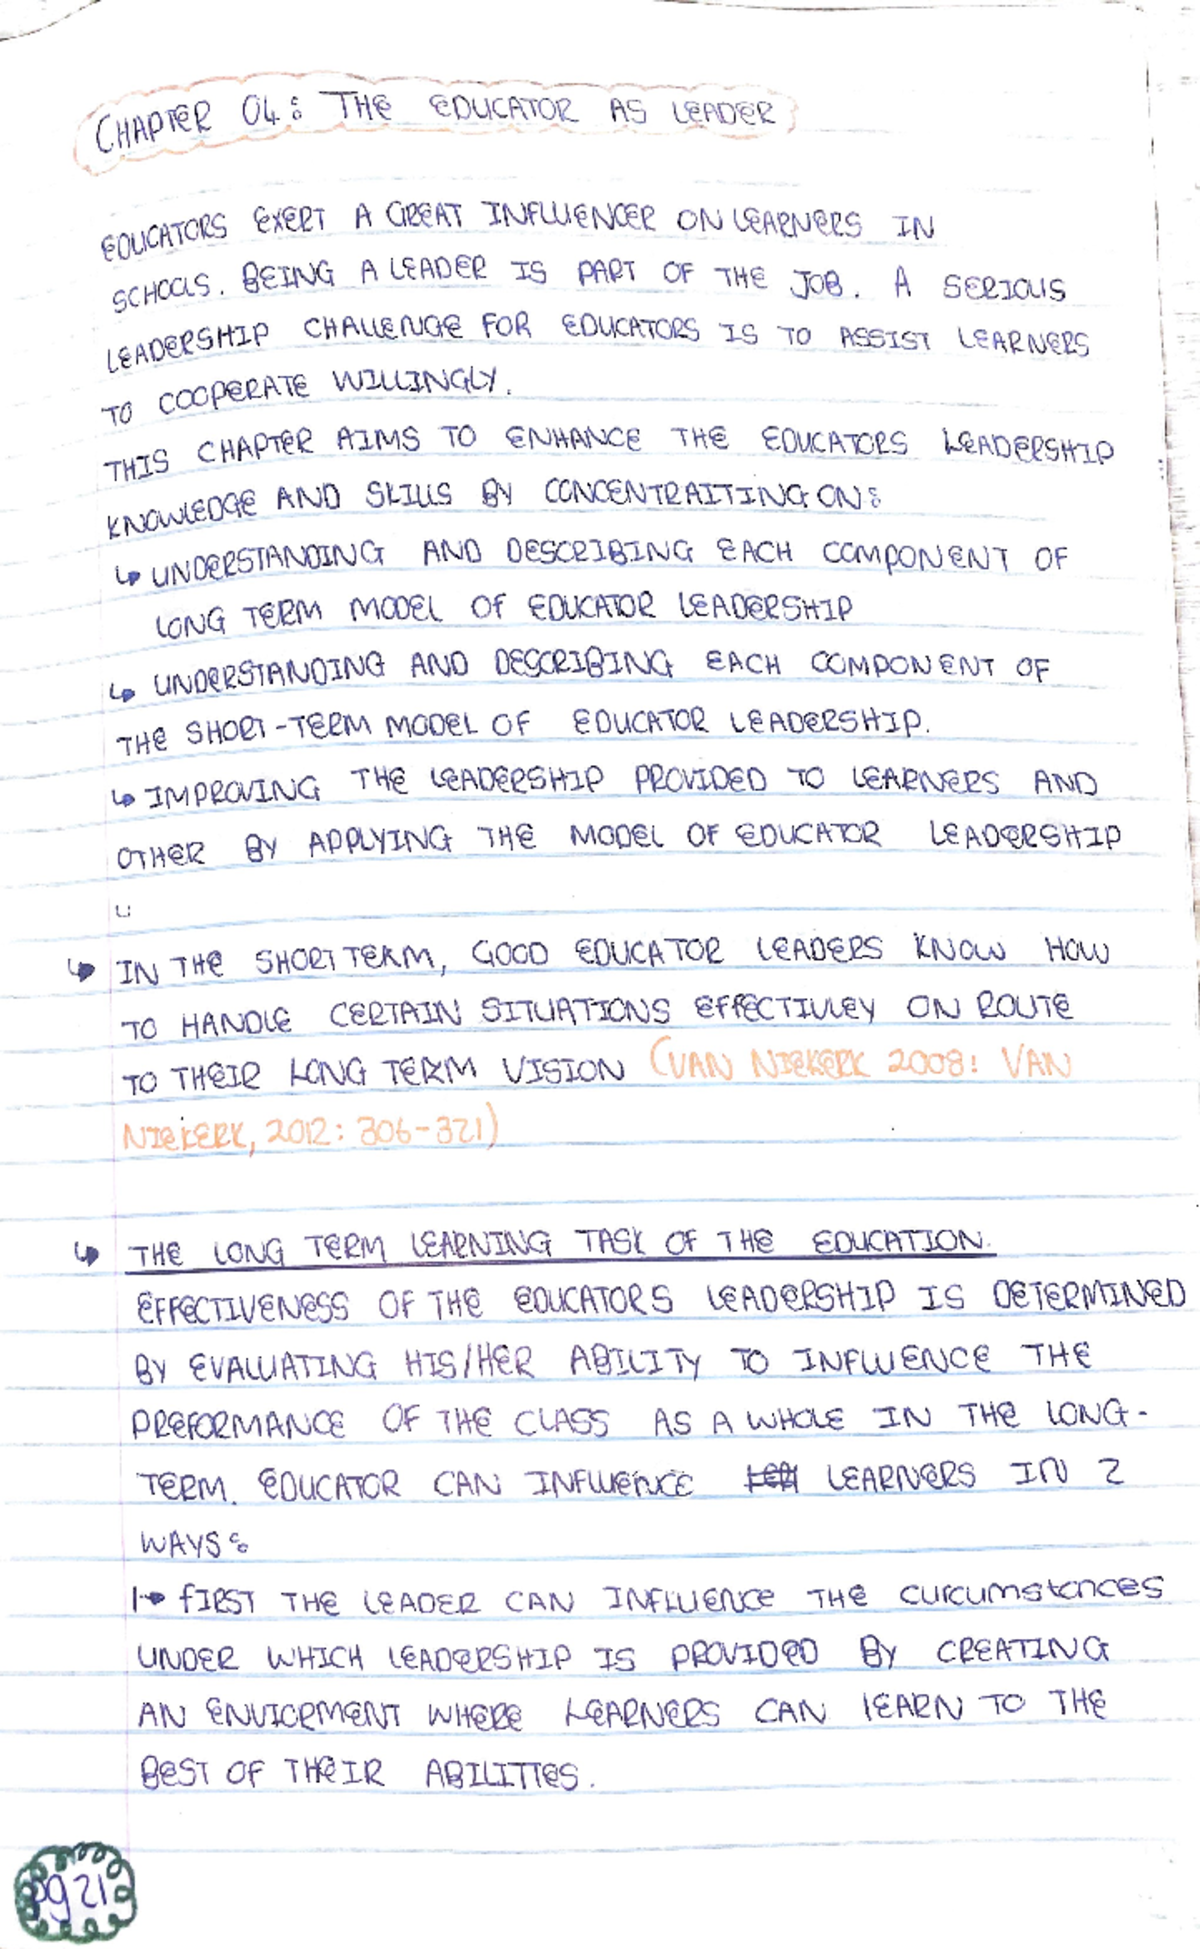 CHAPTER 04: THE EDUCATOR AS LEADER
EDUCATORS EXERT A GREAT INFLUENCER ON LEARNERS IN
SCHOOLS. BEING A LEADER IS PART OF THE JOB. A SERIOUS
LEADERSHIP CHALLENGE FOR EDUCATORS IS TO ASSIST LEARNERS
TO COOPERATE WILLINGLY.
THIS CHAPTER AIMS TO ENHANCE THE EDUCATORS LEADERSHIP
KNOWLEDGE AND SKILLS BY CONCENTRAITING ON:
↳ UNDERSTANDING AND DESCRIBING EACH COMPONENT OF
LONG TERM MODEL OF EDUCATOR LEADERSHIP
↳ UNDERSTANDING AND DESCRIBING EACH COMPONENT OF
THE SHORT-TERM MODEL OF EDUCATOR LEADERSHIP.
↳ IMPROVING THE LEADERSHIP PROVIDED TO LEARNERS AND
OTHER BY APPLYING THE MODEL OF EDUCATOR LEADERSHIP
↳ IN THE SHORT TERM, GOOD EDUCATOR LEADERS KNOW HOW
TO HANDLE CERTAIN SITUATIONS EFFECTIVLEY ON ROUTE
TO THEIR LONG TERM VISION (VAN NIEKERK 2008: VAN
NIEKERK, 2012: 306-321)
↳ THE LONG TERM LEARNING TASK OF THE EDUCATION.
EFFECTIVENESS OF THE EDUCATORS LEADERSHIP IS DETERMINED
BY EVALUATING HIS/HER ABILITY TO INFLUENCE THE
PREFORMANCE OF THE CLASS AS A WHOLE IN THE LONG-
TERM. EDUCATOR CAN INFLUENCE LEARNERS IN 2
WAYS:
1→ FIRST THE LEADER CAN INFLUENCE THE CURCUMSTANCES
UNDER WHICH LEADERSHIP IS PROVIDED BY CREATING
AN ENVIORMENT WHERE LEARNERS CAN LEARN TO THE
BEST OF THEIR ABILITIES.
pg 21